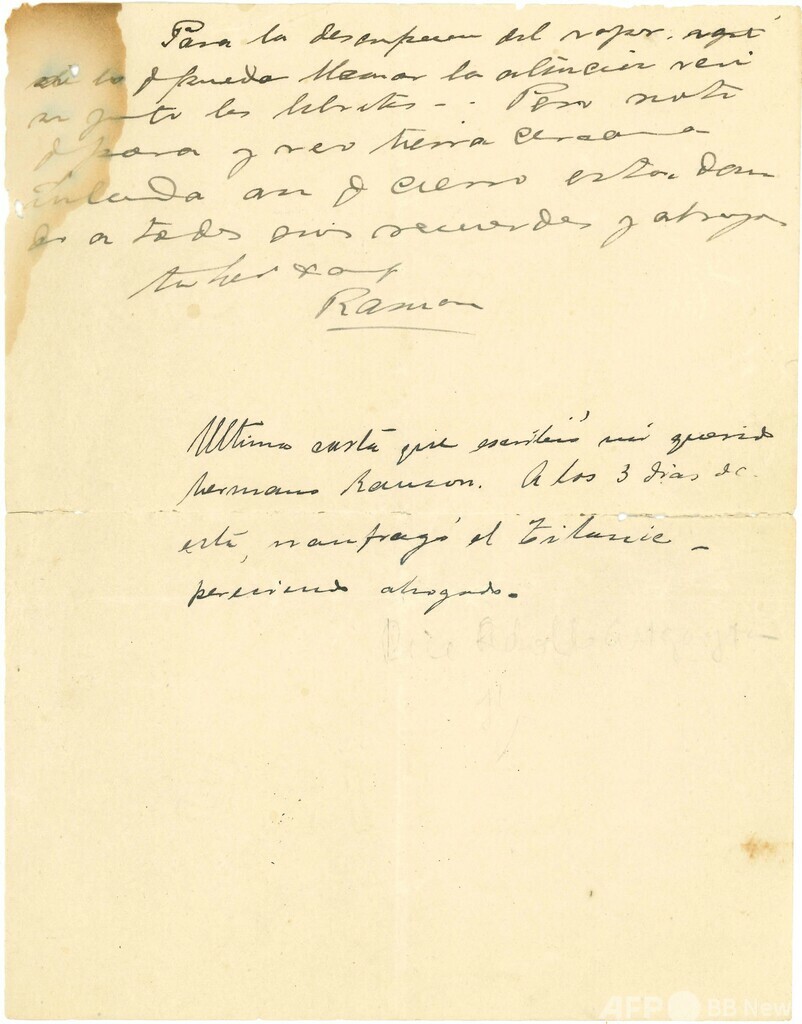 Para la descripcion del vapor, aquí
lo q pueda llamar la atencion ven
junto los libritos -. Pero noto
q para y veo tierra cercana
Irlanda asi q cierro esta, dan
do a todos mis recuerdos y abrazos
tu her
Ramon
Ultima carta que escribió mi querido
hermano Ramon. A los 3 dias de
esta, naufragó el Titanic -
pereciendo ahogado.
AFP BB News